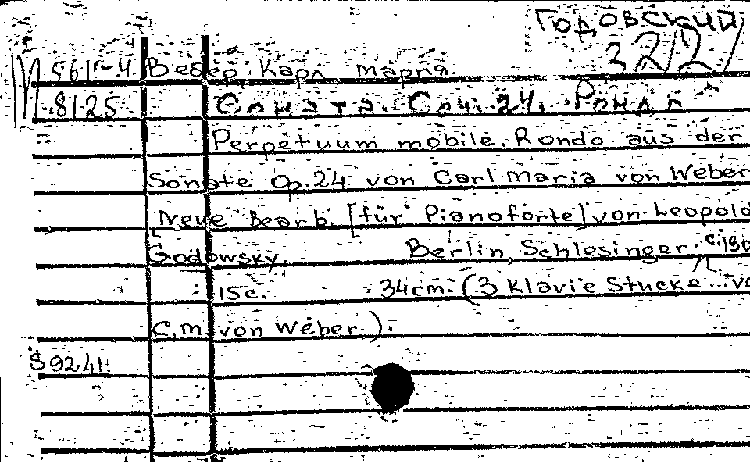 Годовский
3221
М 861-4 Вебер. Карл Мария
8125 Соната. Соч. 24. Рондо
Perpetuum mobile. Rondo aus der
Sonate Op. 24 von Carl Maria von Weber
Neue Bearb. [für Pianoforte] von Leopold
Godowsky. Berlin Schlesinger. c. 190
15c. 34cm. (3 Klavie Stucke
C.M. von Weber).
S 9241